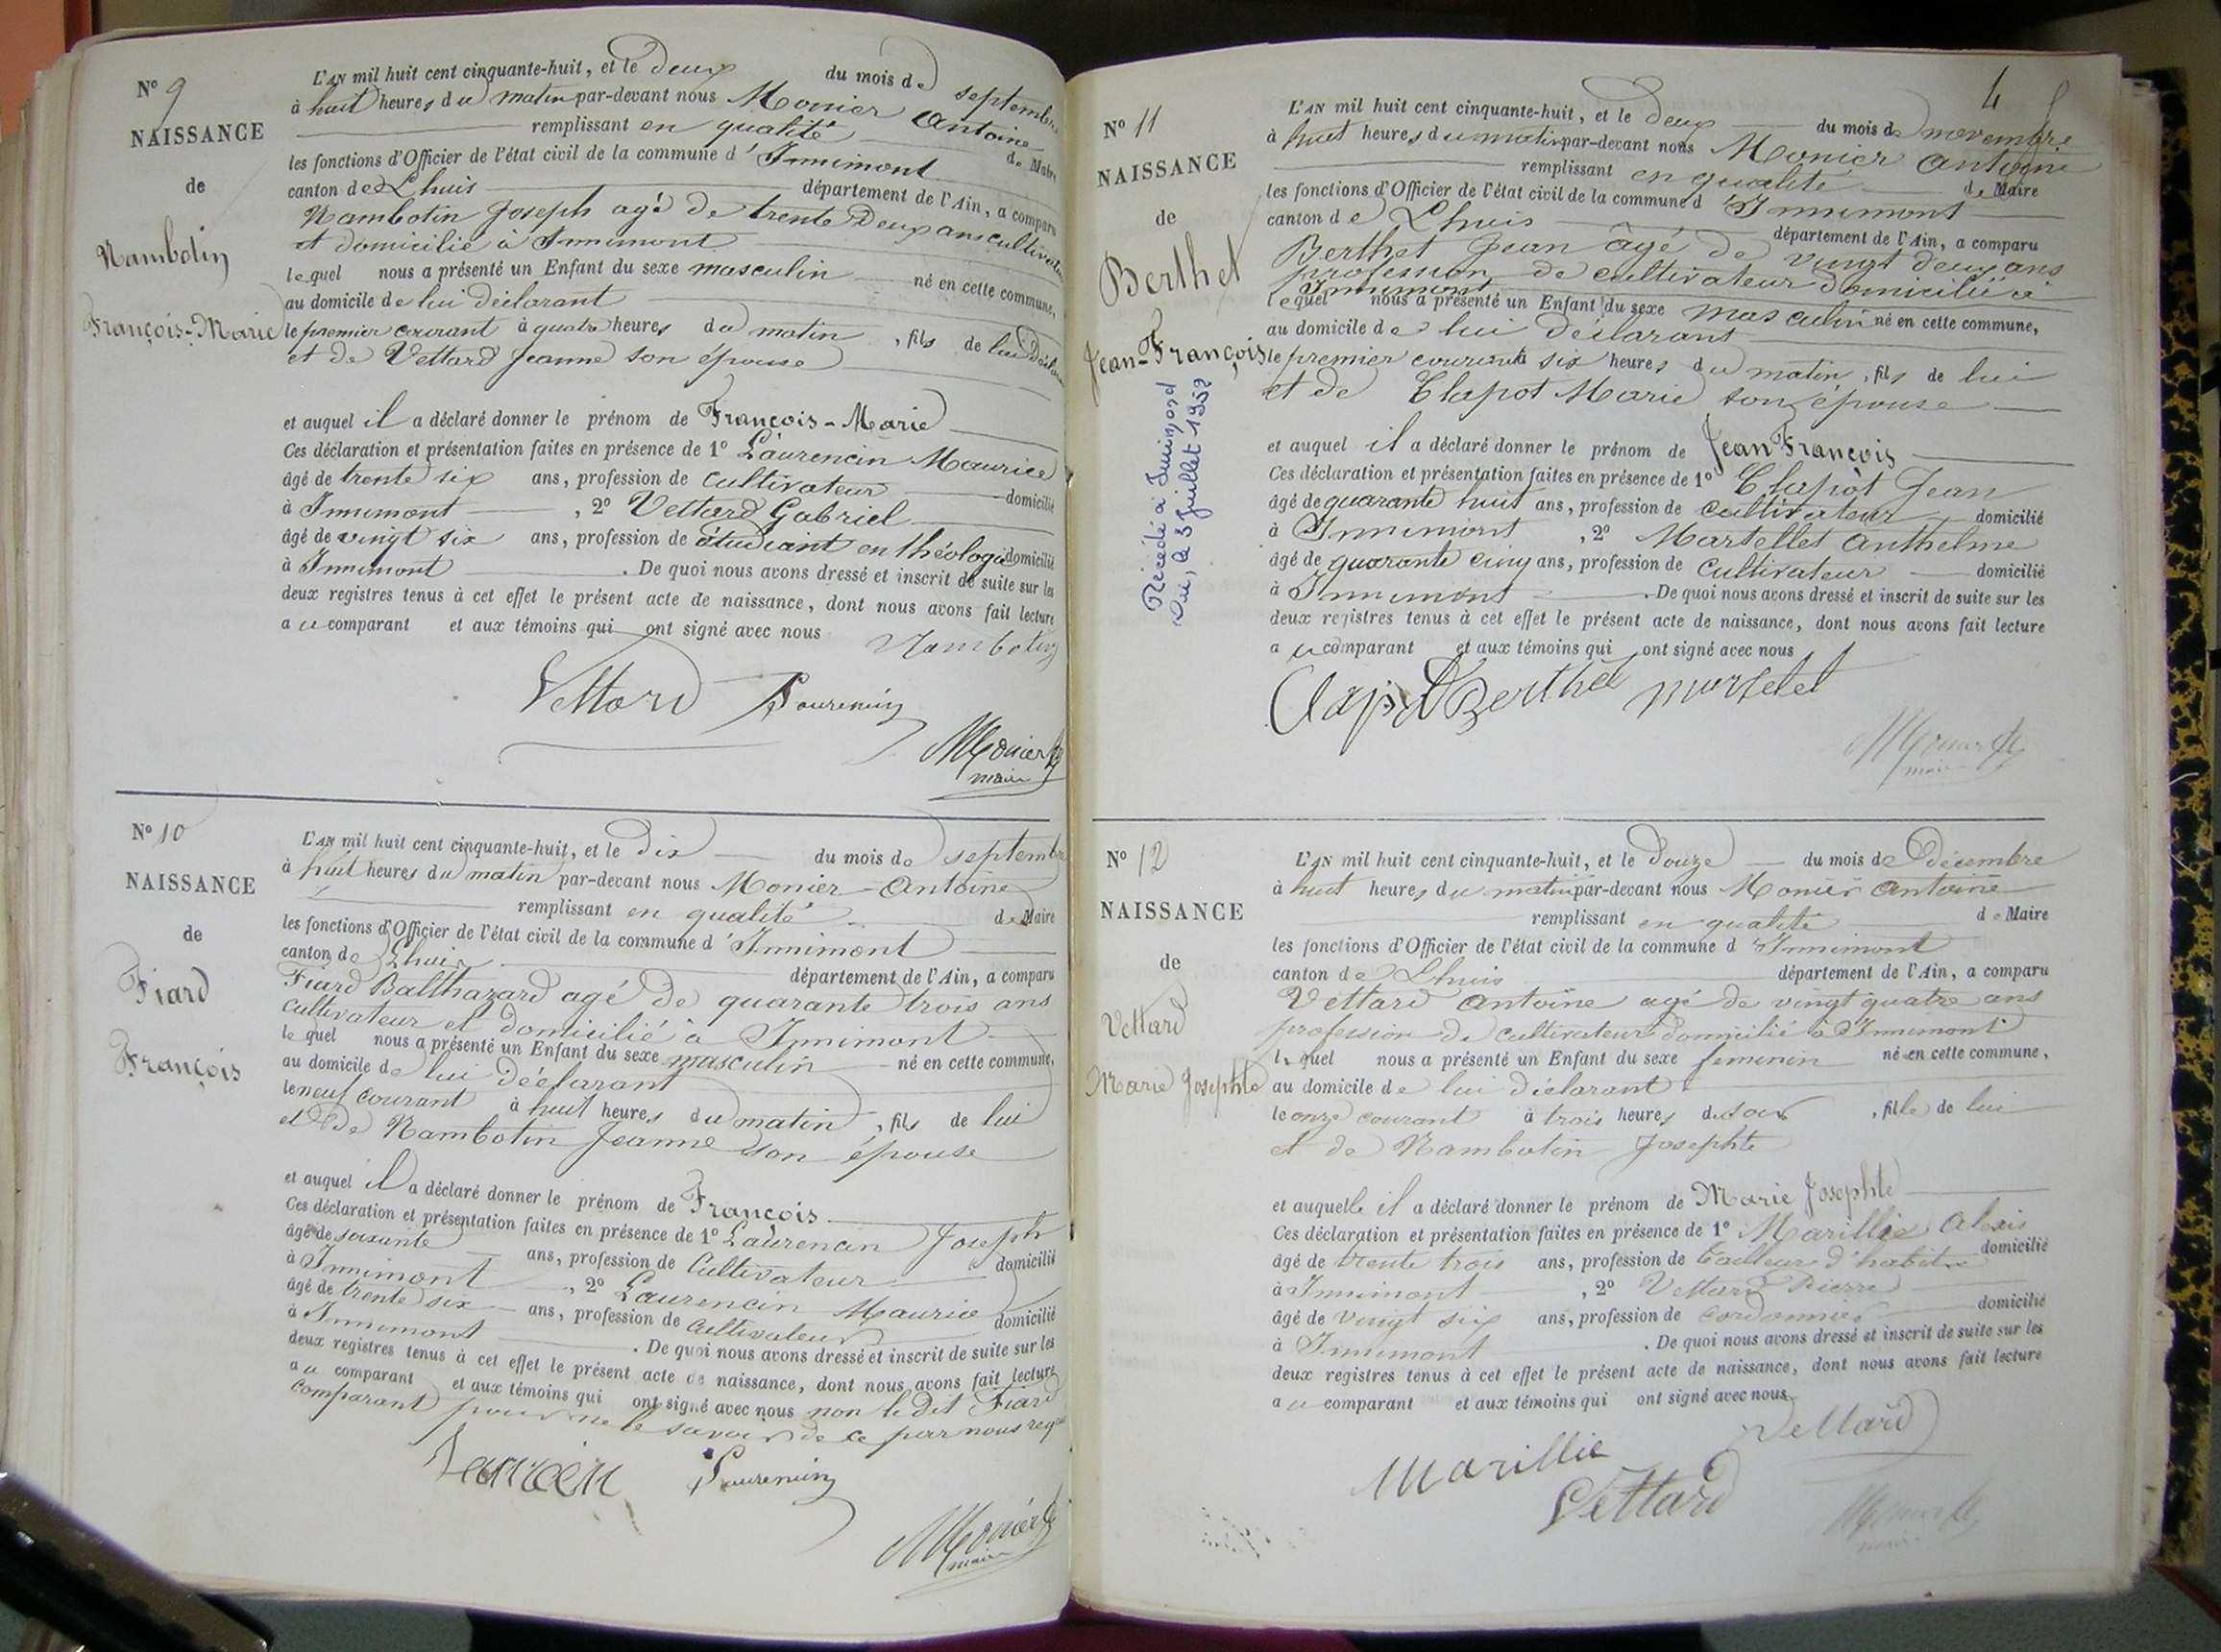 N° 9
NAISSANCE
de
Nambotin
François-Marie
L'AN mil huit cent cinquante-huit, et le deux du mois de septembre
à huit heures du matin par-devant nous Monier Antoine
remplissant en qualité de Maire
les fonctions d'Officier de l'état civil de la commune d'Innimont
canton de Lhuis département de l'Ain, a comparu
Nambotin Joseph agé de trente deux ans cultivateur
et domicilié à Innimont
lequel nous a présenté un Enfant du sexe masculin né en cette commune,
au domicile de lui déclarant
le premier courant à quatre heures du matin, fils de lui
et de Vettard Jeanne son épouse
et auquel il a déclaré donner le prénom de François-Marie
Ces déclaration et présentation faites en présence de 1° Laurencin Maurice
âgé de trente six ans, profession de cultivateur domicilié
à Innimont, 2° Vettard Gabriel
âgé de vingt six ans, profession de étudiant en théologie domicilié
à Innimont. De quoi nous avons dressé et inscrit de suite sur les
deux registres tenus à cet effet le présent acte de naissance, dont nous avons fait lecture
au comparant et aux témoins qui ont signé avec nous Nambotin
Vettard Laurencin
Monier
maire
N° 10
NAISSANCE
de
Fiard
François
L'AN mil huit cent cinquante-huit, et le dix du mois de septembre
à huit heures du matin par-devant nous Monier Antoine
remplissant en qualité de Maire
les fonctions d'Officier de l'état civil de la commune d'Innimont
canton de Lhuis département de l'Ain, a comparu
Fiard Balthazard agé de quarante trois ans
cultivateur et domicilié à Innimont
lequel nous a présenté un Enfant du sexe masculin né en cette commune,
au domicile de lui déclarant
le neuf courant à huit heures du matin, fils de lui
et de Nambotin Jeanne son épouse
et auquel il a déclaré donner le prénom de François
Ces déclaration et présentation faites en présence de 1° Laurencin Joseph
âgé de soixante ans, profession de Cultivateur domicilié
à Innimont, 2° Laurencin Maurice
âgé de trente six ans, profession de cultivateur domicilié
à Innimont. De quoi nous avons dressé et inscrit de suite sur les
deux registres tenus à cet effet le présent acte de naissance, dont nous avons fait lecture
au comparant et aux témoins qui ont signé avec nous non le dit Fiard
comparant pour ne le savoir de ce par nous req
Laurencin
Monier
maire
4
N° 11
NAISSANCE
de
Berthet
Jean-François
Décédé à Innimont
Ain, le 3 juillet 1938
L'AN mil huit cent cinquante-huit, et le deux du mois de novembre
à huit heures du matin par-devant nous Monier Antoine
remplissant en qualité de Maire
les fonctions d'Officier de l'état civil de la commune d'Innimont
canton de Lhuis département de l'Ain, a comparu
Berthet Jean âgé de vingt deux ans
profession de cultivateur domicilié à
Innimont
lequel nous a présenté un Enfant du sexe masculin né en cette commune,
au domicile de lui déclarant
le premier courant à six heures du matin, fils de lui
et de Clapot Marie son épouse
et auquel il a déclaré donner le prénom de Jean François
Ces déclaration et présentation faites en présence de 1° Clapot Jean
âgé de quarante huit ans, profession de cultivateur domicilié
à Innimont, 2° Martellet Anthelme
âgé de quarante cinq ans, profession de cultivateur domicilié
à Innimont. De quoi nous avons dressé et inscrit de suite sur les
deux registres tenus à cet effet le présent acte de naissance, dont nous avons fait lecture
au comparant et aux témoins qui ont signé avec nous
Clapot Berthet martelet
Monier
maire
N° 12
NAISSANCE
de
Vettard
Marie Josephte
L'AN mil huit cent cinquante-huit, et le douze du mois de décembre
à huit heures du matin par-devant nous Monier Antoine
remplissant en qualité de Maire
les fonctions d'Officier de l'état civil de la commune d'Innimont
canton de Lhuis département de l'Ain, a comparu
Vettard Antoine agé de vingt quatre ans
profession de cultivateur domicilié à Innimont
lequel nous a présenté un Enfant du sexe feminin né en cette commune,
au domicile de lui déclarant
le onze courant à trois heures du soir, fille de lui
et de Nambotin Josephte
et auquelle il a déclaré donner le prénom de Marie Josephte
Ces déclaration et présentation faites en présence de 1° Marillie Alexis
âgé de trente trois ans, profession de tailleur d'habits domicilié
à Innimont, 2° Vettard Pierre
âgé de vingt six ans, profession de cordonnier domicilié
à Innimont. De quoi nous avons dressé et inscrit de suite sur les
deux registres tenus à cet effet le présent acte de naissance, dont nous avons fait lecture
au comparant et aux témoins qui ont signé avec nous
Marillie Vettard
Vettard
Monier
maire